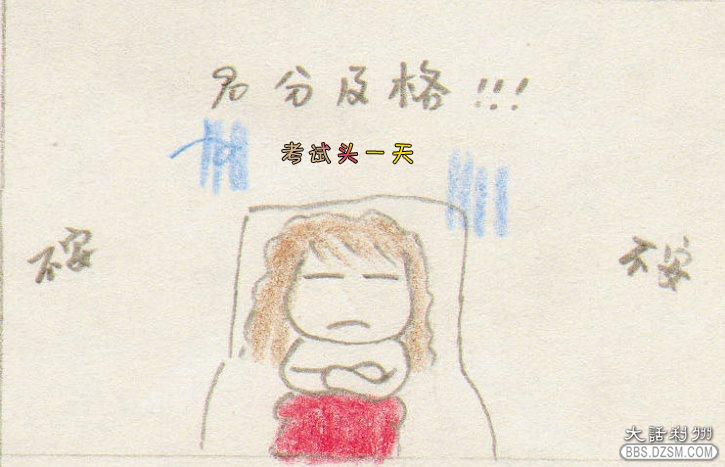 90分及格!!!
考试头一天
不安
不安
大話利州
BBS.DZSM.COM